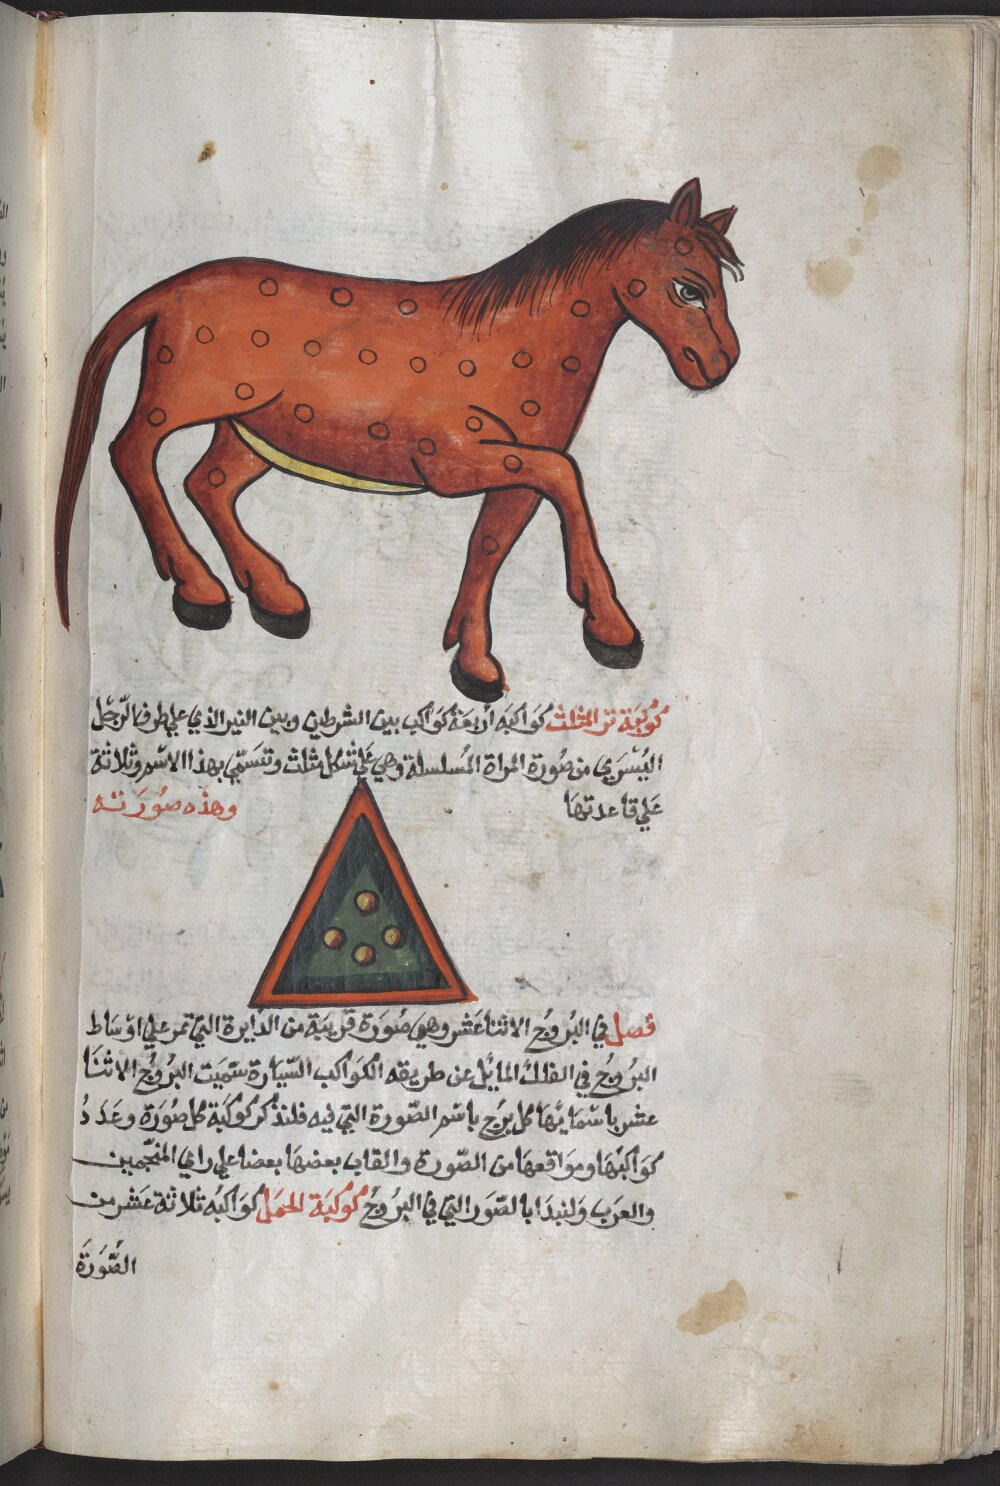 كَوْكَبَة المثلث كَوَاكبَه أرْبعَة كَوَاكب بين الشرطين وبين النير الذي علي طرف الرِّجْل
اليُسْرَي من صُورة المرَاة المُسلسلة وهي عَلي شكل مثلث وتسَمّي بهذا الاسْم وثلاثة
عَلي قاعدتهَا وهَذه صُورَته
فصل في البُروجُ الاثنا عَشر وهي صُورَة قَريبَة من الدَّايرة التي تمر علي اوْسَاط
البُرُوجُ في الفلك المايُل عن طريقه الكَوَاكب السّيَارة سُمّيَت البرُوجُ الاثنَا
عشر باسْمَايهَا كل برْج باسْم الصّورة التي فيه فلنذكر كوكَبَة كل صُورَة وعَدَدُ
كوَاكبهَا وموَاقعهَا من الصّورة والقاب بعضهَا بعضا علي راي المنجّمين
والعرَب وَلنبدَا بالصّوَر التي في البرُوجُ كوْكبَة الحمَل كوَاكبُه ثلاثة عَشر من
الصُّوَرَة